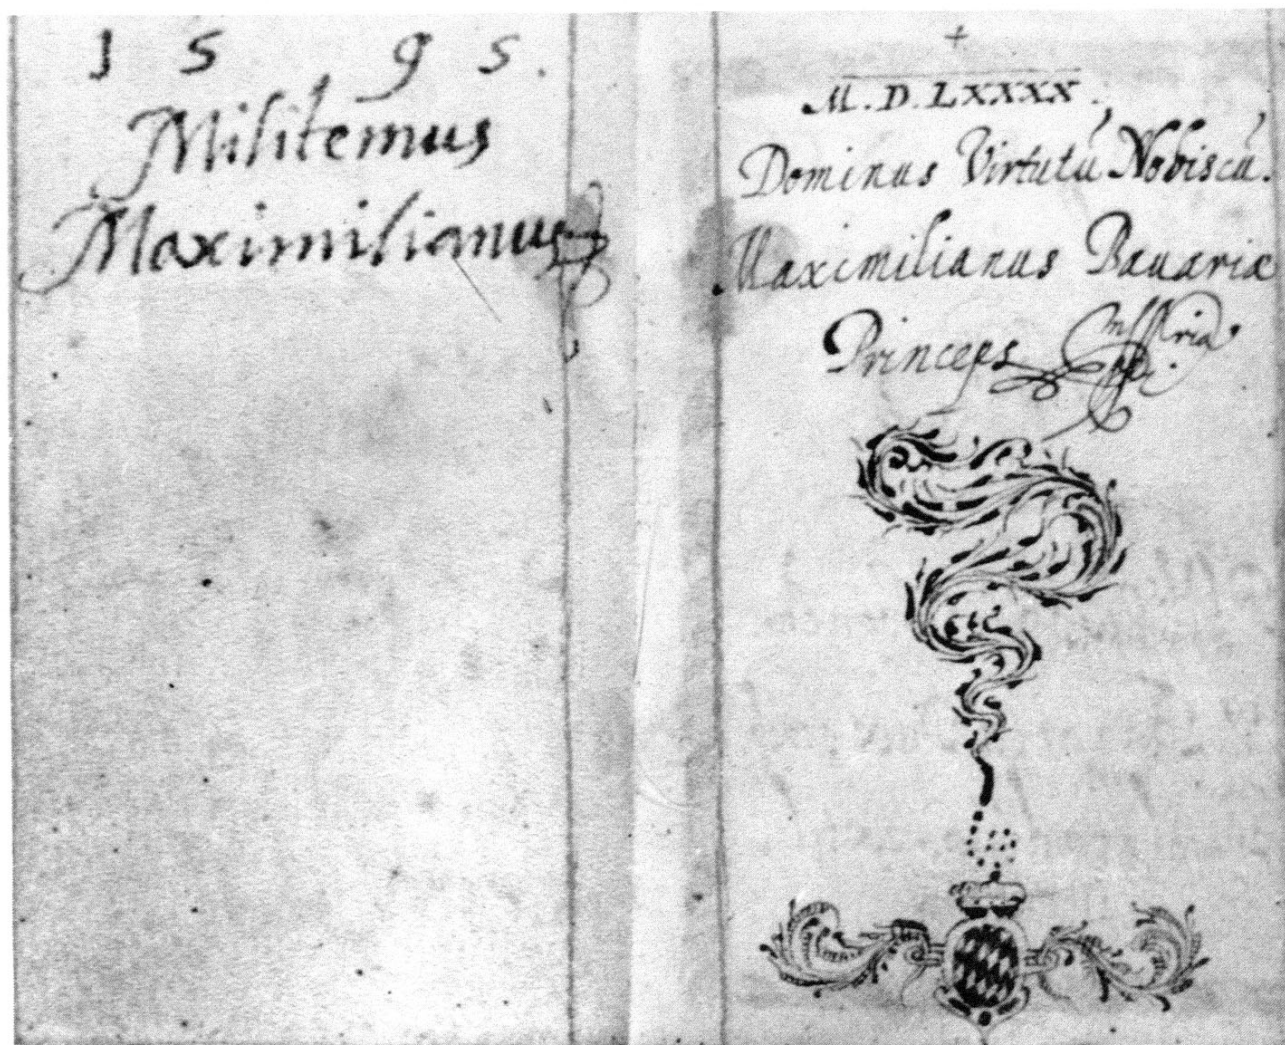 1595.
Militemus
Maximilianus
+
M.D.LXXXX.
Dominus Virtutū Nobiscū.
Maximilianus Bavariæ
Princeps